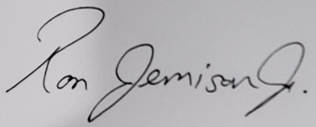 Ron Jemison Jr.